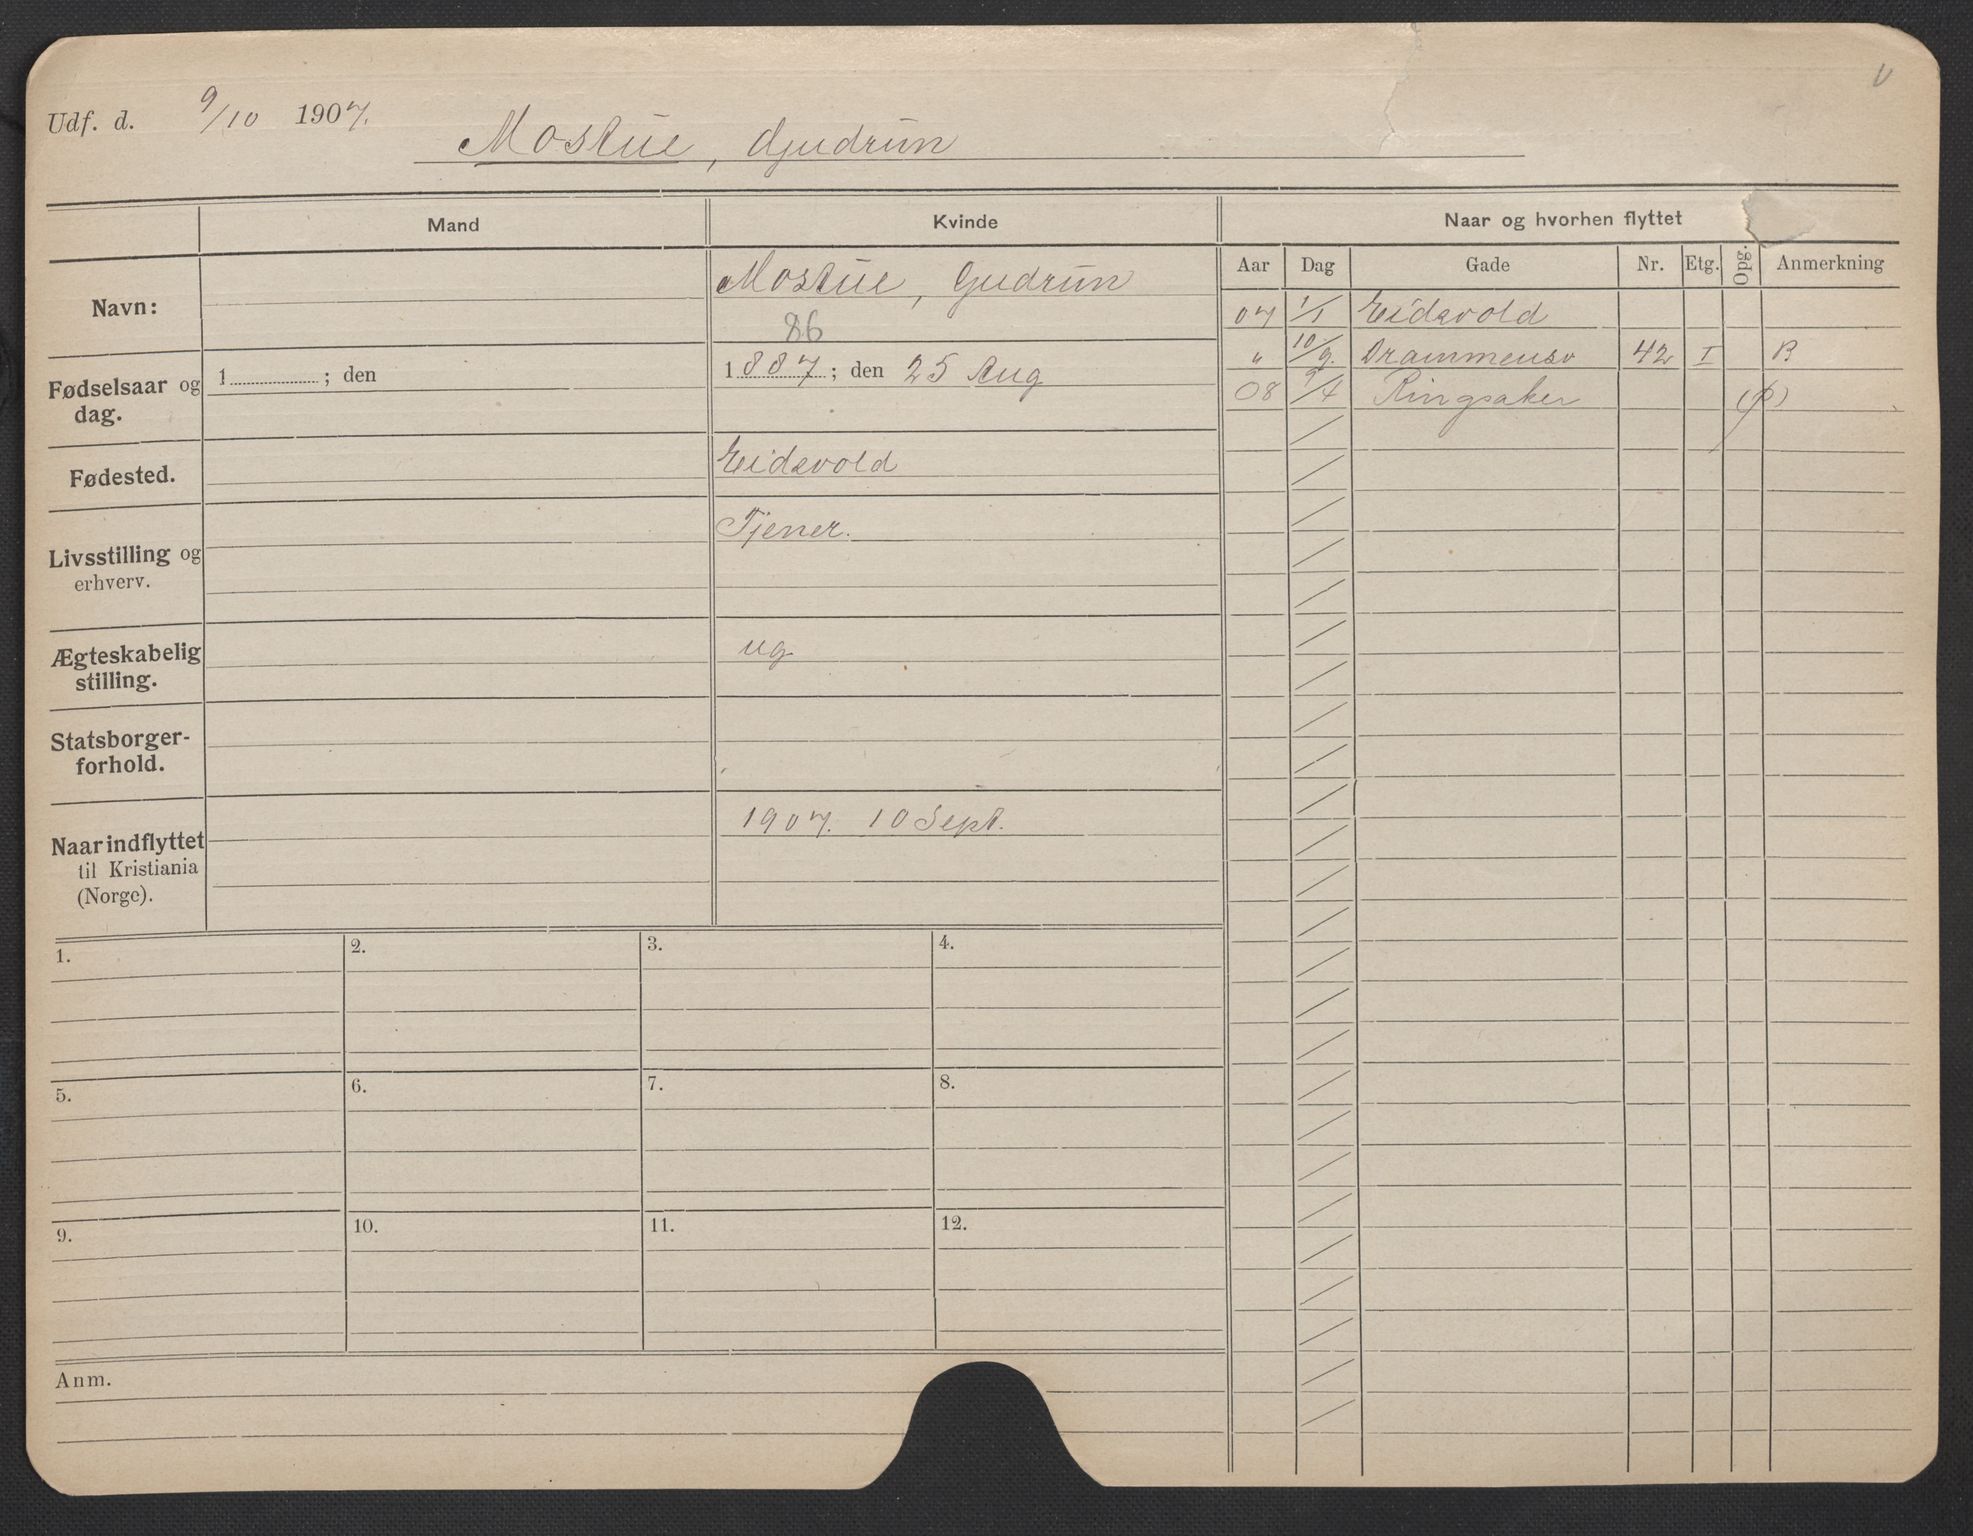 Udf. d. 9/10 1907.
Mostue, Gudrun
Mand
Kvinde
Naar og hvorhen flyttet
Aar Dag Gade Nr. Etg. Opg. Anmerkning
Navn:
Mostue, Gudrun
86
07 1/1 Eidsvold
" 10/9. Drammensv 42 I B
08 9/4 Ringsaker (p)
Fødselsaar og
dag.
1 ; den
1887; den 25 Aug
Fødested.
Eidsvold
Livsstilling og
erhverv.
Tjener.
Ægteskabelig
stilling.
ug
Statsborger-
forhold.
Naar indflyttet
til Kristiania
(Norge).
1907. 10 Sept.
1. 2. 3. 4.
5. 6. 7. 8.
9. 10. 11. 12.
Anm.